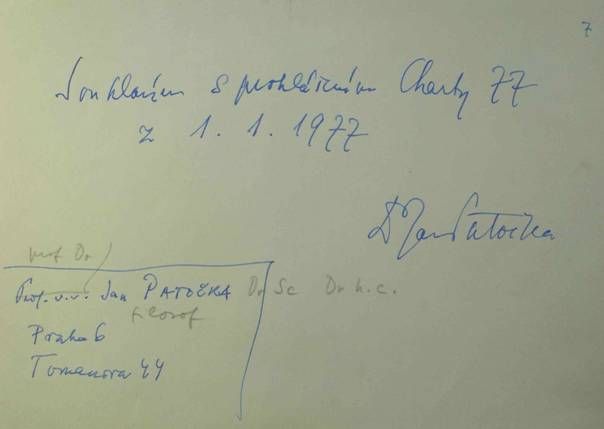 7
Souhlasím s prohlášením Charty 77
z 1. 1. 1977
Dr Jan Patočka
prof Dr
Prof. v.v. Jan PATOČKA Dr Sc Dr h.c.
filosof
Praha 6
Tomanova 44